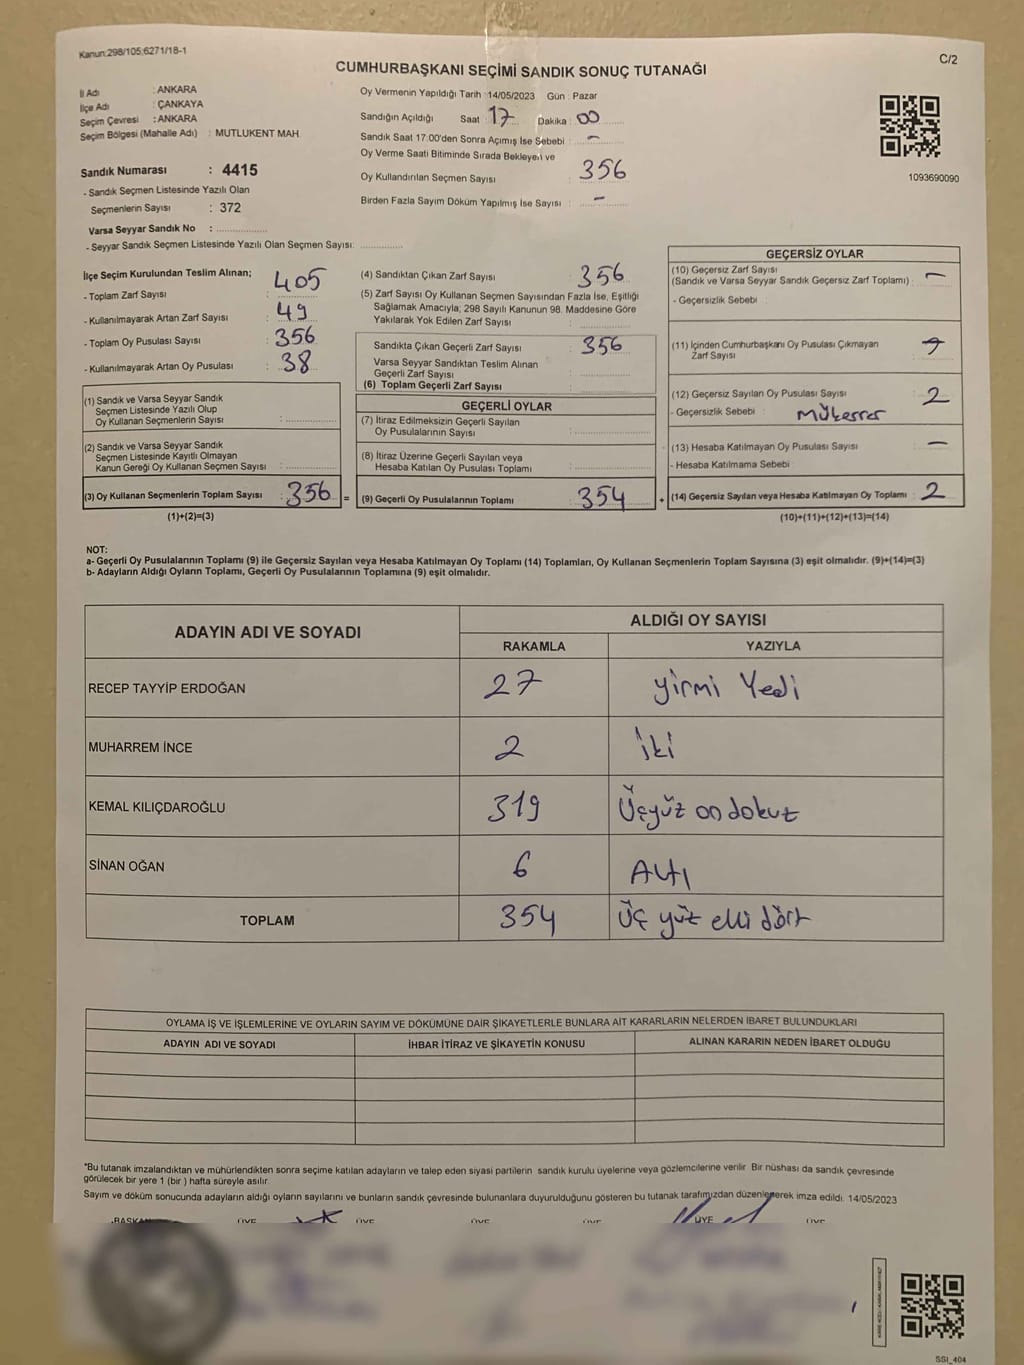 Kanun:298/105;6271/18-1
C/2
CUMHURBAŞKANI SEÇİMİ SANDIK SONUÇ TUTANAĞI
İl Adı : ANKARA
İlçe Adı : ÇANKAYA
Seçim Çevresi : ANKARA
Seçim Bölgesi (Mahalle Adı) : MUTLUKENT MAH.
Oy Vermenin Yapıldığı Tarih :14/05/2023 Gün : Pazar
Sandığın Açıldığı Saat : 17 Dakika : 00
Sandık Saat 17:00'den Sonra Açılmış İse Sebebi : -
Oy Verme Saati Bitiminde Sırada Bekleyen ve
Oy Kullandırılan Seçmen Sayısı : 356
Birden Fazla Sayım Döküm Yapılmış İse Sayısı : -
1093690090
Sandık Numarası : 4415
- Sandık Seçmen Listesinde Yazılı Olan
Seçmenlerin Sayısı : 372
Varsa Seyyar Sandık No :
- Seyyar Sandık Seçmen Listesinde Yazılı Olan Seçmen Sayısı:
İlçe Seçim Kurulundan Teslim Alınan;
- Toplam Zarf Sayısı : 405
- Kullanılmayarak Artan Zarf Sayısı : 49
- Toplam Oy Pusulası Sayısı : 356
- Kullanılmayarak Artan Oy Pusulası : 38
(1) Sandık ve Varsa Seyyar Sandık
Seçmen Listesinde Yazılı Olup
Oy Kullanan Seçmenlerin Sayısı :
(2) Sandık ve Varsa Seyyar Sandık
Seçmen Listesinde Kayıtlı Olmayan
Kanun Gereği Oy Kullanan Seçmen Sayısı :
(3) Oy Kullanan Seçmenlerin Toplam Sayısı : 356 =
(1)+(2)=(3)
(4) Sandıktan Çıkan Zarf Sayısı : 356
(5) Zarf Sayısı Oy Kullanan Seçmen Sayısından Fazla İse, Eşitliği
Sağlamak Amacıyla; 298 Sayılı Kanunun 98. Maddesine Göre
Yakılarak Yok Edilen Zarf Sayısı :
Sandıkta Çıkan Geçerli Zarf Sayısı : 356
Varsa Seyyar Sandıktan Teslim Alınan
Geçerli Zarf Sayısı :
(6) Toplam Geçerli Zarf Sayısı :
GEÇERLİ OYLAR
(7) İtiraz Edilmeksizin Geçerli Sayılan
Oy Pusulalarının Sayısı :
(8) İtiraz Üzerine Geçerli Sayılan veya
Hesaba Katılan Oy Pusulası Toplamı :
(9) Geçerli Oy Pusulalarının Toplamı : 354 +
GEÇERSİZ OYLAR
(10) Geçersiz Zarf Sayısı
(Sandık ve Varsa Seyyar Sandık Geçersiz Zarf Toplamı) : -
- Geçersizlik Sebebi :
(11) İçinden Cumhurbaşkanı Oy Pusulası Çıkmayan
Zarf Sayısı :
(12) Geçersiz Sayılan Oy Pusulası Sayısı : 2
- Geçersizlik Sebebi : Mükerrer
(13) Hesaba Katılmayan Oy Pusulası Sayısı : -
- Hesaba Katılmama Sebebi :
(14) Geçersiz Sayılan veya Hesaba Katılmayan Oy Toplamı : 2
(10)+(11)+(12)+(13)=(14)
NOT:
a- Geçerli Oy Pusulalarının Toplamı (9) ile Geçersiz Sayılan veya Hesaba Katılmayan Oy Toplamı (14) Toplamları, Oy Kullanan Seçmenlerin Toplam Sayısına (3) eşit olmalıdır. (9)+(14)=(3)
b- Adayların Aldığı Oyların Toplamı, Geçerli Oy Pusulalarının Toplamına (9) eşit olmalıdır.
ADAYIN ADI VE SOYADI
ALDIĞI OY SAYISI
RAKAMLA YAZIYLA
RECEP TAYYİP ERDOĞAN 27 yirmi Yedi
MUHARREM İNCE 2 iki
KEMAL KILIÇDAROĞLU 319 Üçyüz on dokuz
SİNAN OĞAN 6 Altı
TOPLAM 354 üç yüz elli dört
OYLAMA İŞ VE İŞLEMLERİNE VE OYLARIN SAYIM VE DÖKÜMÜNE DAİR ŞİKAYETLERLE BUNLARA AİT KARARLARIN NELERDEN İBARET BULUNDUKLARI
ADAYIN ADI VE SOYADI İHBAR İTİRAZ VE ŞİKAYETİN KONUSU ALINAN KARARIN NEDEN İBARET OLDUĞU
*Bu tutanak imzalandıktan ve mühürlendikten sonra seçime katılan adayların ve talep eden siyasi partilerin sandık kurulu üyelerine veya gözlemcilerine verilir. Bir nüshası da sandık çevresinde
görülecek bir yere 1 (bir) hafta süreyle asılır.
Sayım ve döküm sonucunda adayların aldığı oyların sayılarını ve bunların sandık çevresinde bulunanlara duyurulduğunu gösteren bu tutanak tarafımızdan düzenlenerek imza edildi. 14/05/2023
BAŞKAN ÜYE ÜYE ÜYE ÜYE ÜYE ÜYE
SSI_404